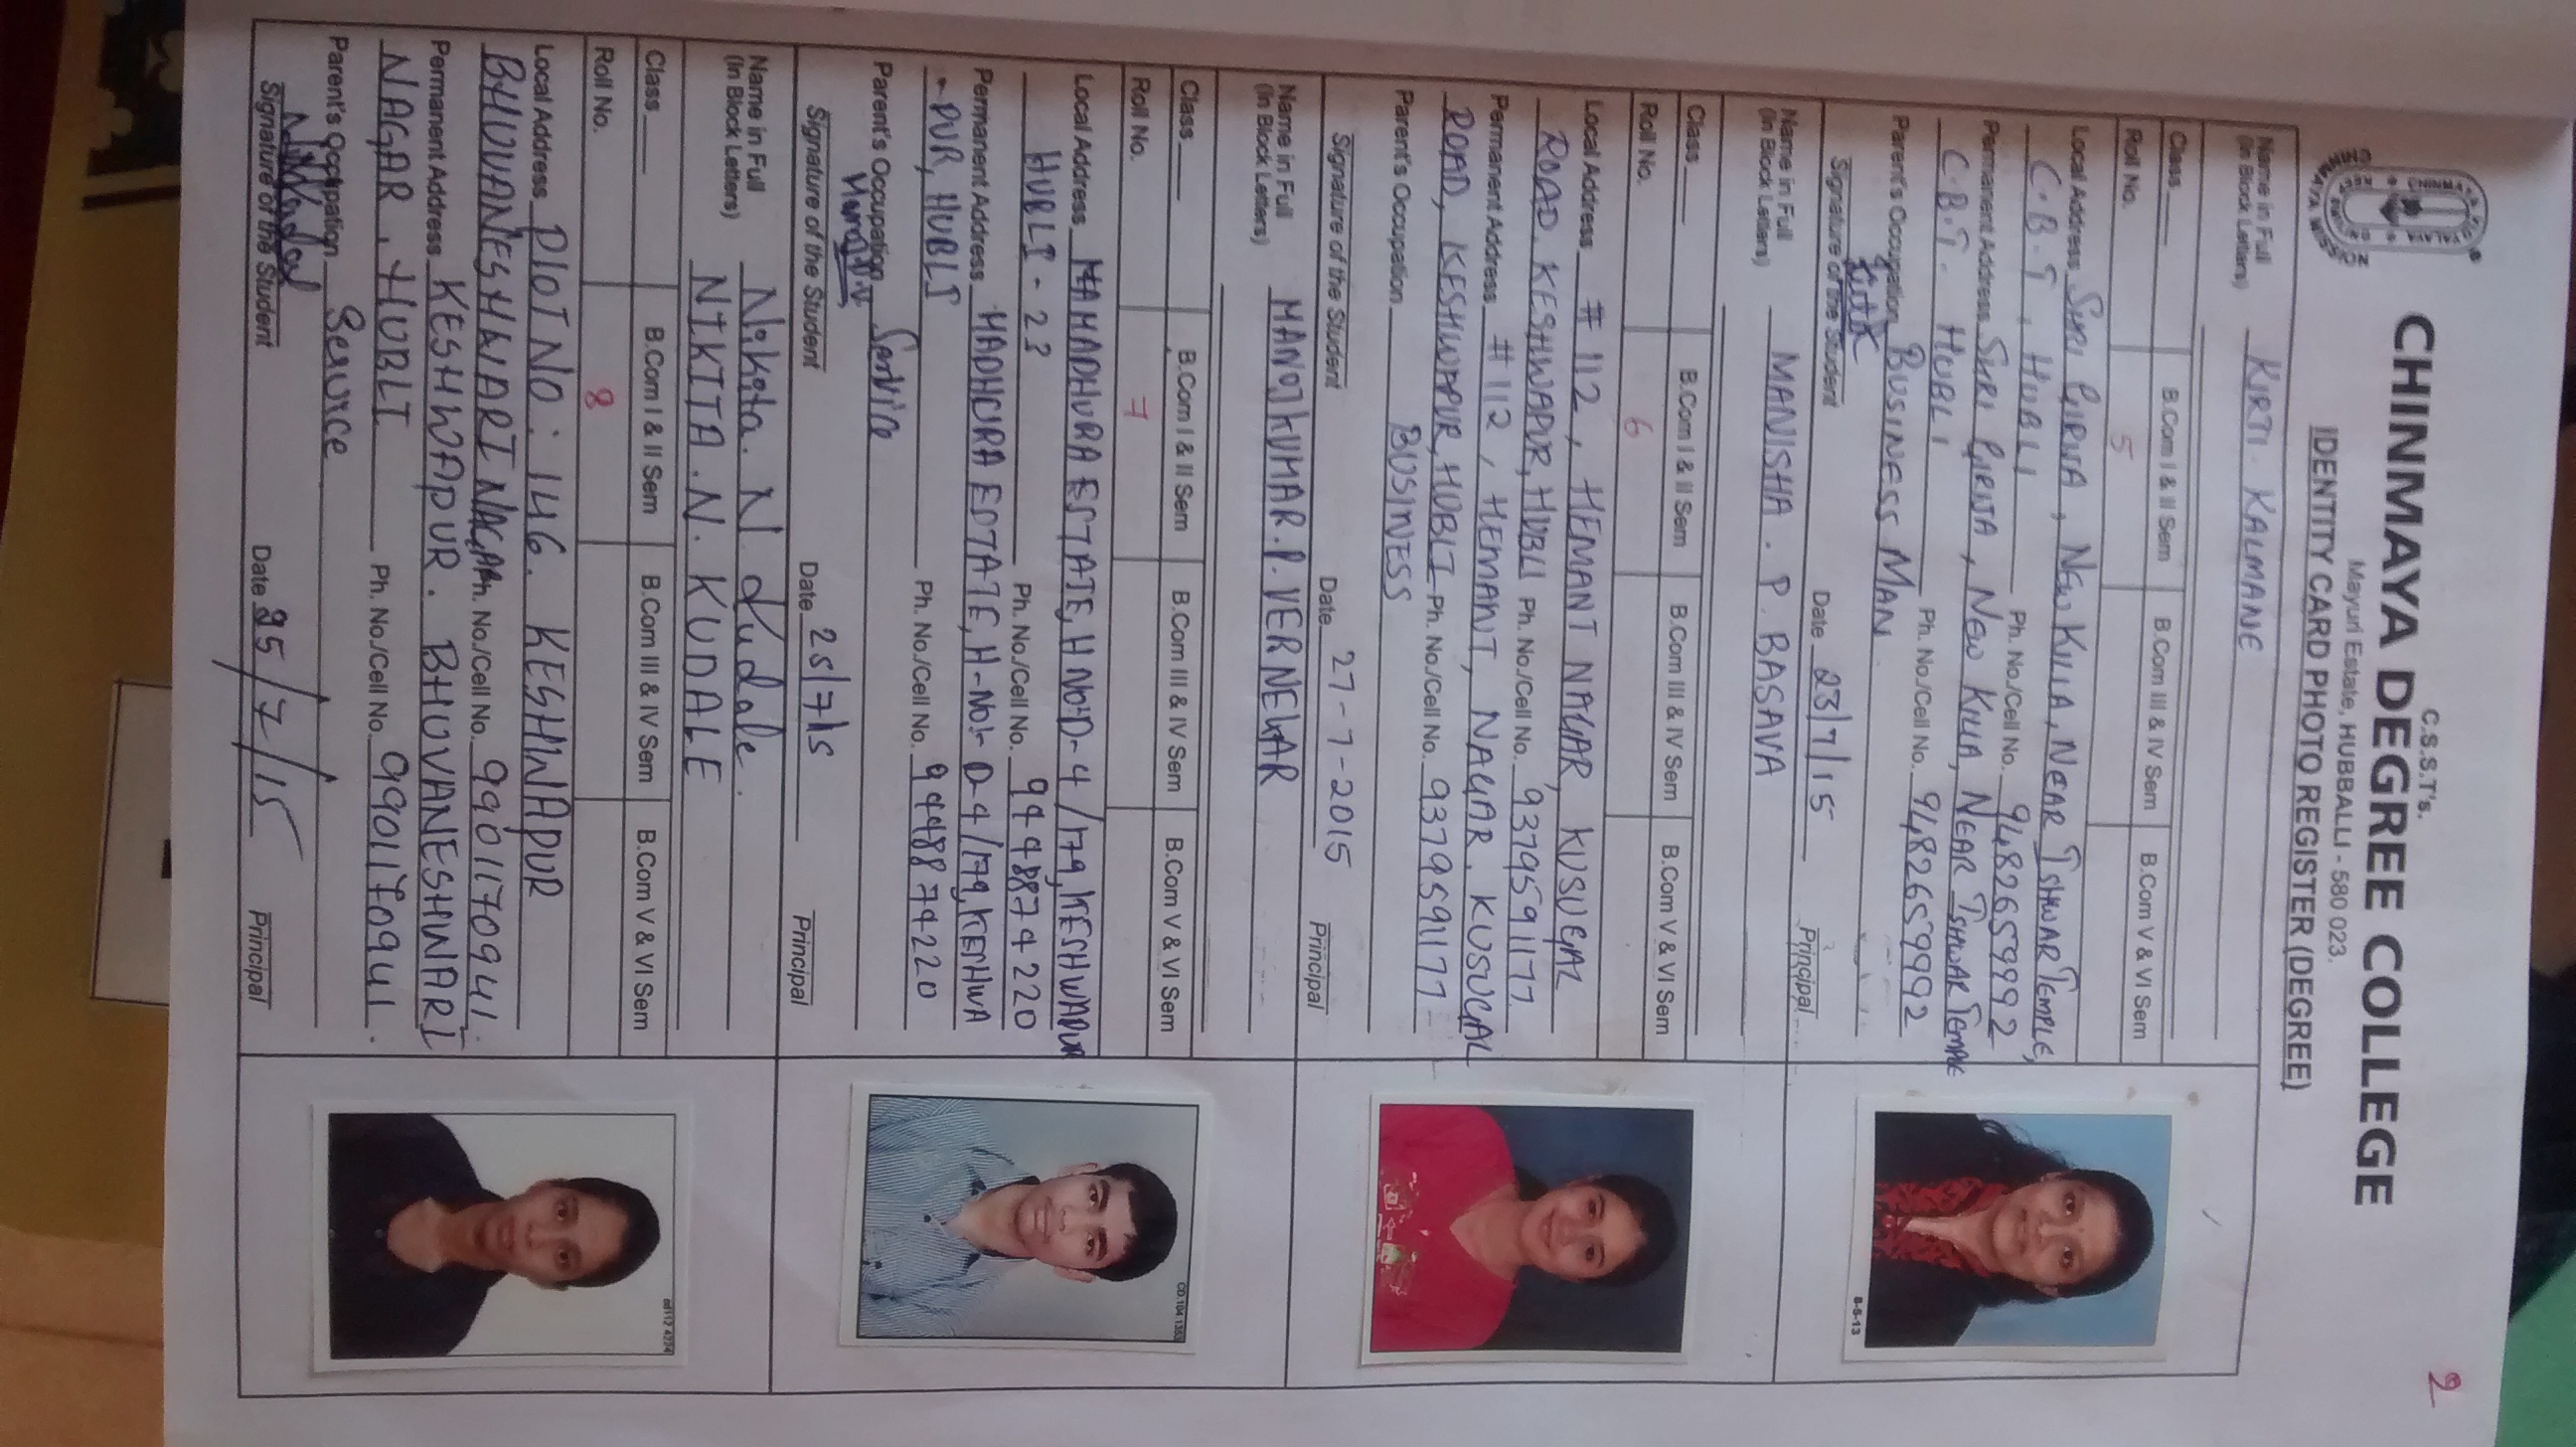 2
C.S.S.T's.
CHINMAYA DEGREE COLLEGE
Mayuri Estate, HUBBALLI - 580 023.
IDENTITY CARD PHOTO REGISTER (DEGREE)
Name in Full KIRTI. KALMANE
(In Block Letters)
Class B.Com I & II Sem B.Com III & IV Sem B.Com V & VI Sem
Roll No. 5
Local Address SHRI GIRIJA, NEW KILLA, NEAR ISHWAR TEMPLE,
C.B.T, HUBLI Ph. No./Cell No. 9482659992
Permanent Address SHRI GIRIJA, NEW KILLA, NEAR ISHWAR TEMPLE
C.B.T. HUBLI Ph. No./Cell No. 9482659992
Parent's Occupation BUSINESS MAN
Signature of the Student Date 23/7/15 Principal
8-5-13
Name in Full MANISHA. P. BASAVA
(In Block Letters)
Class B.Com I & II Sem B.Com III & IV Sem B.Com V & VI Sem
Roll No. 6
Local Address #112, HEMANT NAGAR, KUSUGAL
ROAD. KESHWAPUR, HUBLI Ph. No./Cell No. 9379591177
Permanent Address #112, HEMANT, NAGAR. KUSUGAL
ROAD, KESHWAPUR, HUBLI Ph. No./Cell No. 9379591177
Parent's Occupation BUSINESS
Signature of the Student Date 27-7-2015 Principal
Name in Full MANOJKUMAR. P. VERNEKAR
(In Block Letters)
Class B.Com I & II Sem B.Com III & IV Sem B.Com V & VI Sem
Roll No. 7
Local Address MAMADHURA ESTATE, H NO:D-4/179, KESHWAPUR
HUBLI - 23 Ph. No./Cell No. 9448874220
Permanent Address MADHURA ESTATE, H-No:- D-4/179, KESHWA
-PUR, HUBLI Ph. No./Cell No. 9448874220
Parent's Occupation Service
Signature of the Student Date 25/7/15 Principal
CD.104.1353
Name in Full Nikita. N. Kudale.
(In Block Letters) NIKITA. N. KUDALE
Class B.Com I & II Sem B.Com III & IV Sem B.Com V & VI Sem
Roll No. 8
Local Address PLOT NO: 146. KESHWAPUR
BHUVANESHWARI NAGAR Ph. No./Cell No. 9901170941.
Permanent Address KESHWAPUR. BHUVANESHWARI
NAGAR, HUBLI Ph. No./Cell No. 9901170941.
Parent's Occupation Service
Signature of the Student Date 25/7/15 Principal